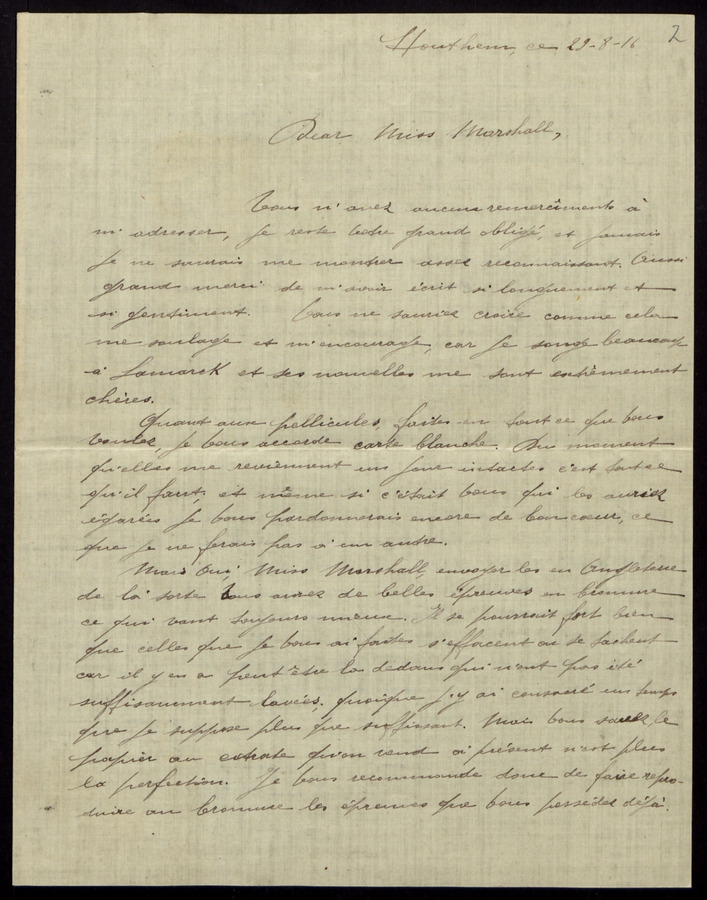 Houthem, ce 29-8-16
2
Dear Miss Marshall,
Vous n'avez aucun remerciments à
m'adresser, je reste votre grand obligé, et jamais
je ne saurais me montrer assez reconnaissant. Aussi
grand merci de m'avoir écrit si longuement et
si gentiment. Vous ne sauriez croire comme cela
me soulage et m'encourage, car je songe beaucoup
à Lamarck et ses nouvelles me sont extrêmement
chères.
Quant aux pellicules, faites-en tout ce que vous
voulez, je vous accorde carte blanche. Du moment
qu'elles me reviennent un jour intactes c'est tout ce
qu'il faut, et même si c'était vous qui les auriez
égarées je vous pardonnerais encore de bon cœur, ce
que je ne ferais pas à un autre.
Mais oui Miss Marshall, envoyer les en Angleterre
de la sorte vous aurez de belles épreuves en bromure
ce qui vaut toujours mieux. Il se pourrait fort bien
que celles que je vous ai faites s'effacent ou se tachent
car il y en a peut être la dedans qui n'ont pas été
suffisamment lavées, quoique j'y ai consacré un temps
que je suppose plus que suffisant. Mais vous savez, le
papier au citrate qu'on vend à présent n'est plus
la perfection. Je vous recommande donc de faire repro-
duire au bromure les épreuves que vous possédez déjà.